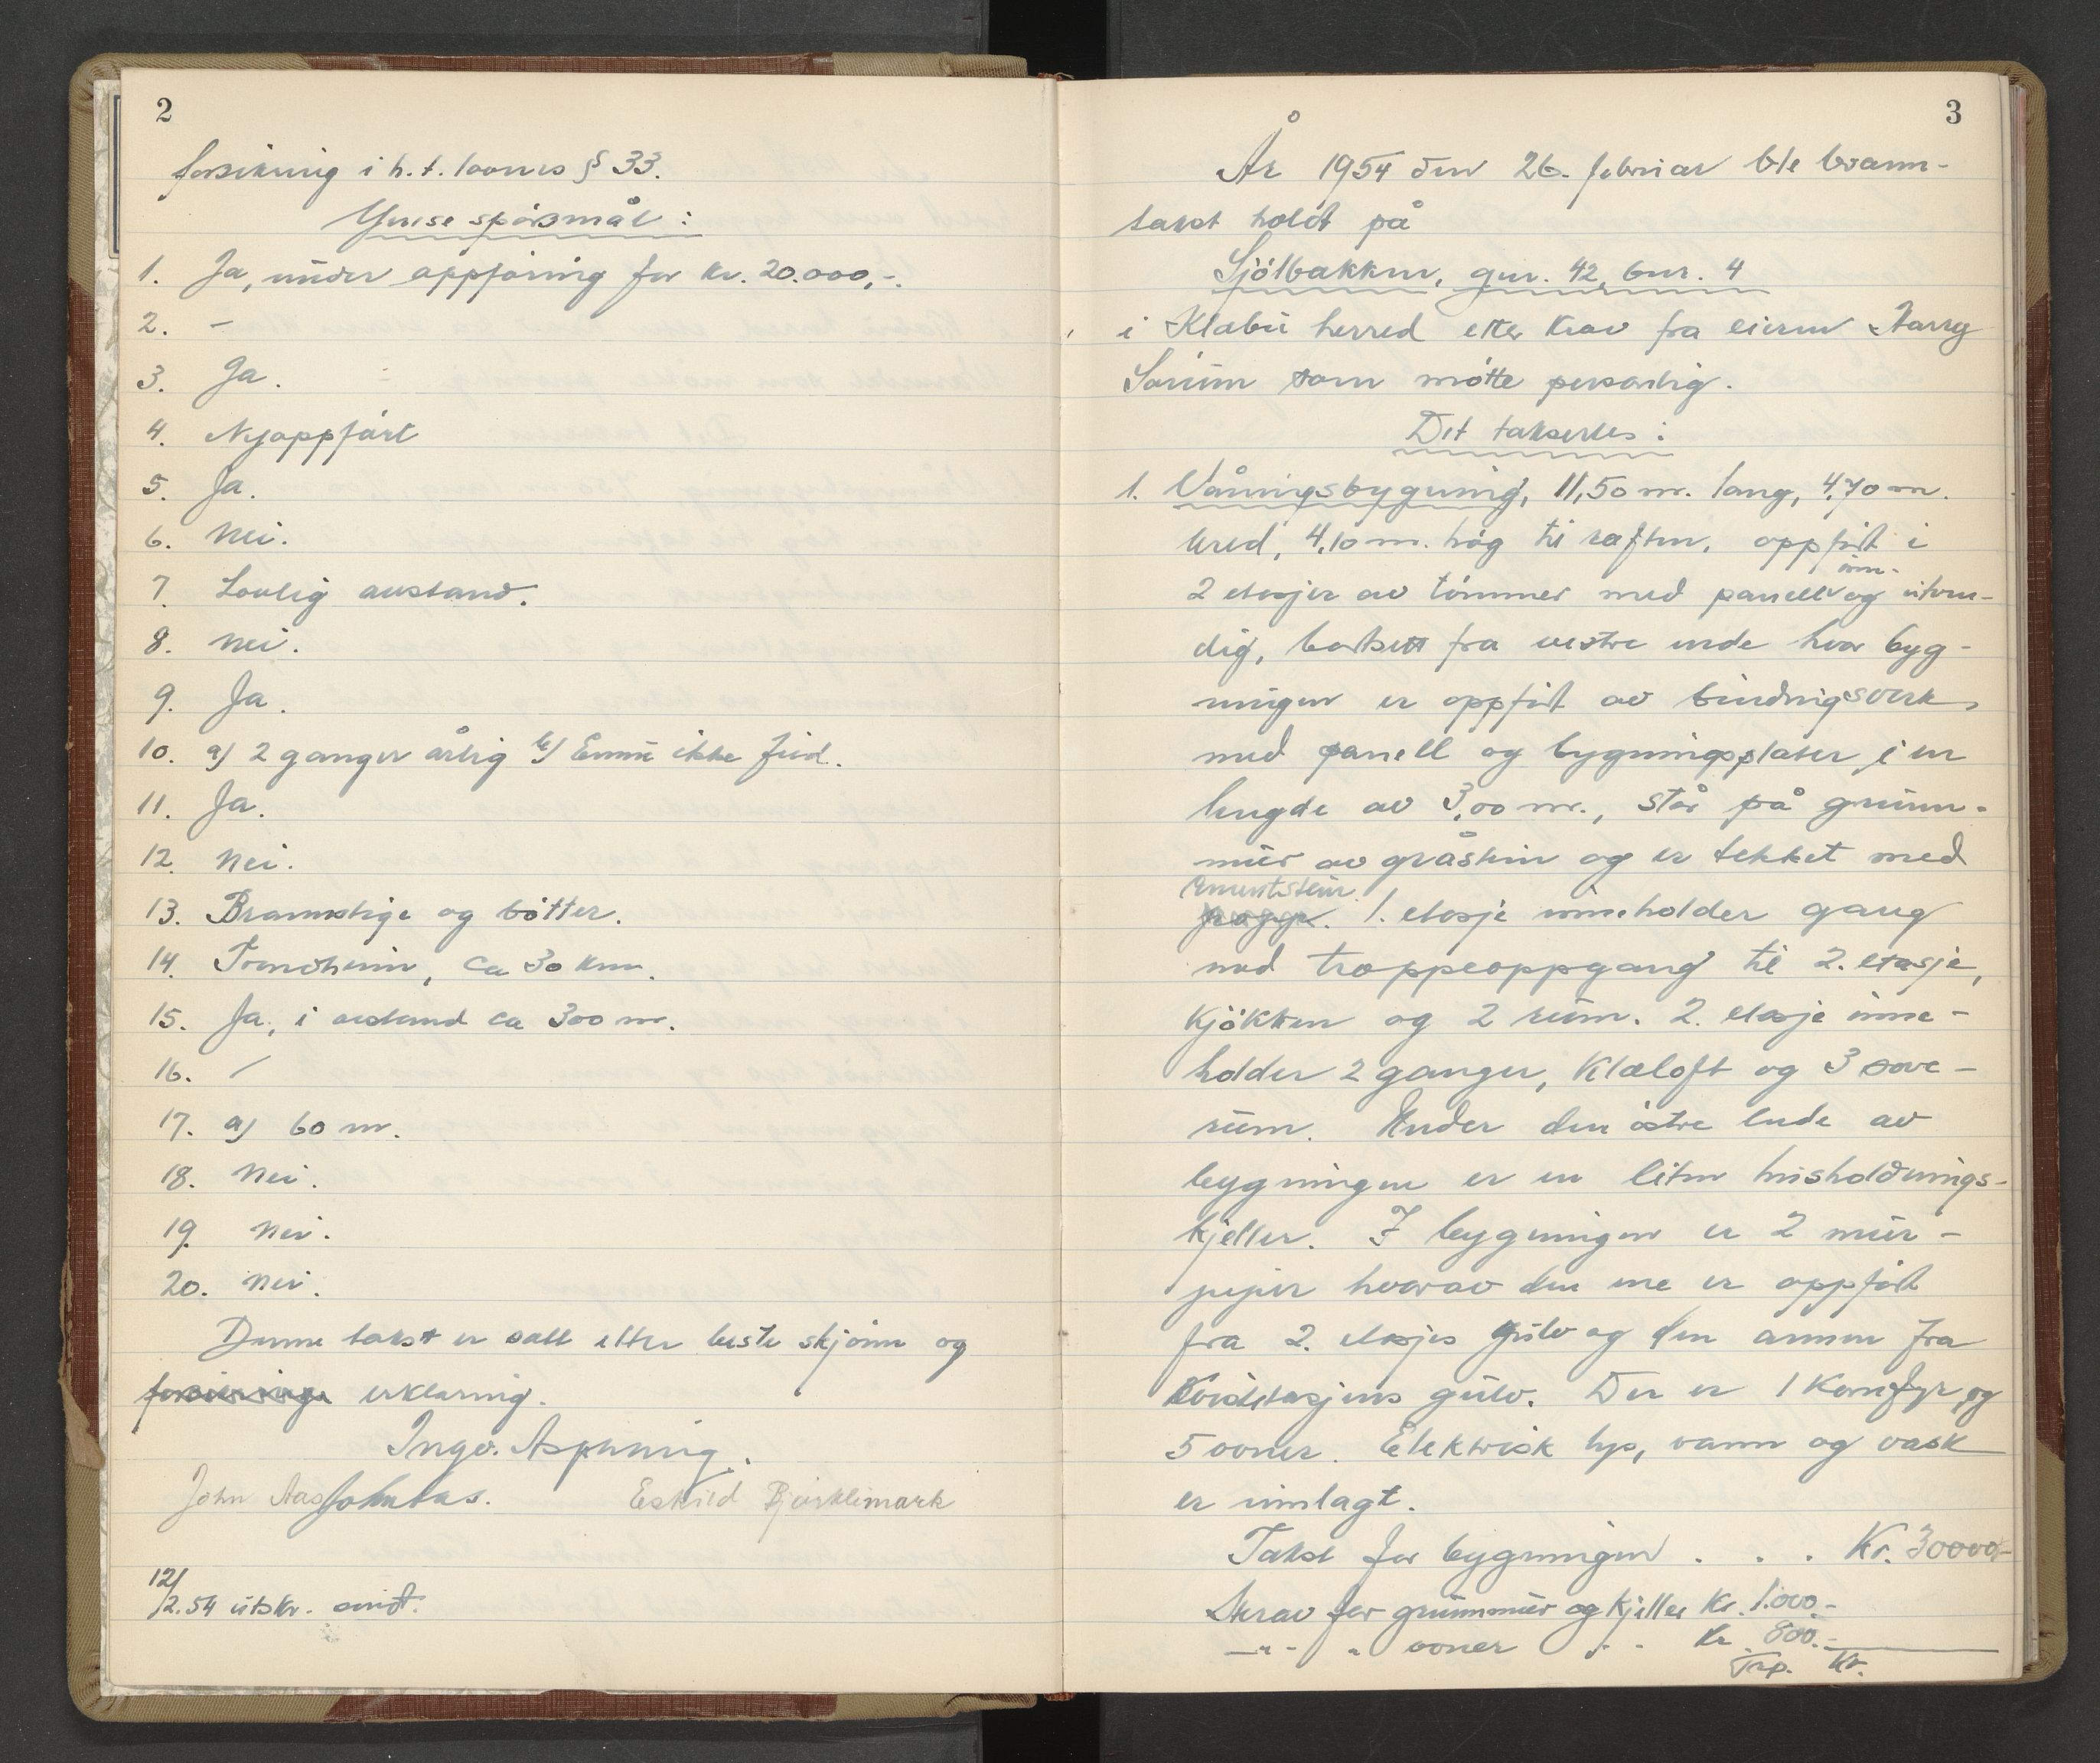 2
forsikring i h.t. lovens § 33.
Ymse spörsmål:
1. Ja, under oppföring for kr. 20.000,-.
2. -
3. Ja.
4. Nyoppfört
5. Ja.
6. Nei.
7. Lovlig avstand.
8. Nei.
9. Ja.
10. a) 2 ganger årlig b) Ennu ikke feid.
11. Ja.
12. Nei.
13. Brannstige og bötter.
14. Trondheim, ca 30 km.
15. Ja, i avstand ca 300 m.
16. /
17. a) 60 m.
18. Nei.
19. Nei.
20. Nei.
Denne takst er satt etter beste skjönn og
erklæring.
Ingv. Aspuning.
John Aas John Aas. Eskild Bjørklimark
12/2.54 utskr. sendt.
3
År 1954 den 26. februar ble brann-
takst holdt på
Sjölbakken, gnr. 42, bnr. 4
i Klæbu herred etter krav fra eieren
Sorum som mötte personlig.
Det takseres:
1. Våningsbygning, 11,50 m. lang, 4,70 m.
bred, 4,10 m. hög til raften, oppfört i
2 etasjer av tömmer med panell inn- og utven-
dig, bortsett fra vestre ende hvor byg-
ningen er oppfört av bindingsverk,
med panell og bygningsplater i en
lengde av 3,00 m., står på grunn-
mur av gråstein og er tekket med
sementstein. 1. etasje inneholder gang
med trappeoppgang til 2. etasje,
kjökken og 2 rum. 2. etasje inne-
holder 2 ganger, klæloft og 3 sove-
rum. Under den östre ende av
bygningen er en liten husholdnings-
kjeller. I bygningen er 2 mur-
piper hvorav den ene er oppfört
fra 2. etasjes gulv og den annen fra
kvistetasjens gulv. Der er 1 komfyr og
5 ovner. Elektrisk lys, vann og vask
er innlagt.
Takst for bygningen . . . Kr. 30000,-
Herav for grunnmur og kjeller Kr. 1.000.-
—"— " ovner . . Kr. 800.-
Trp. Kr.